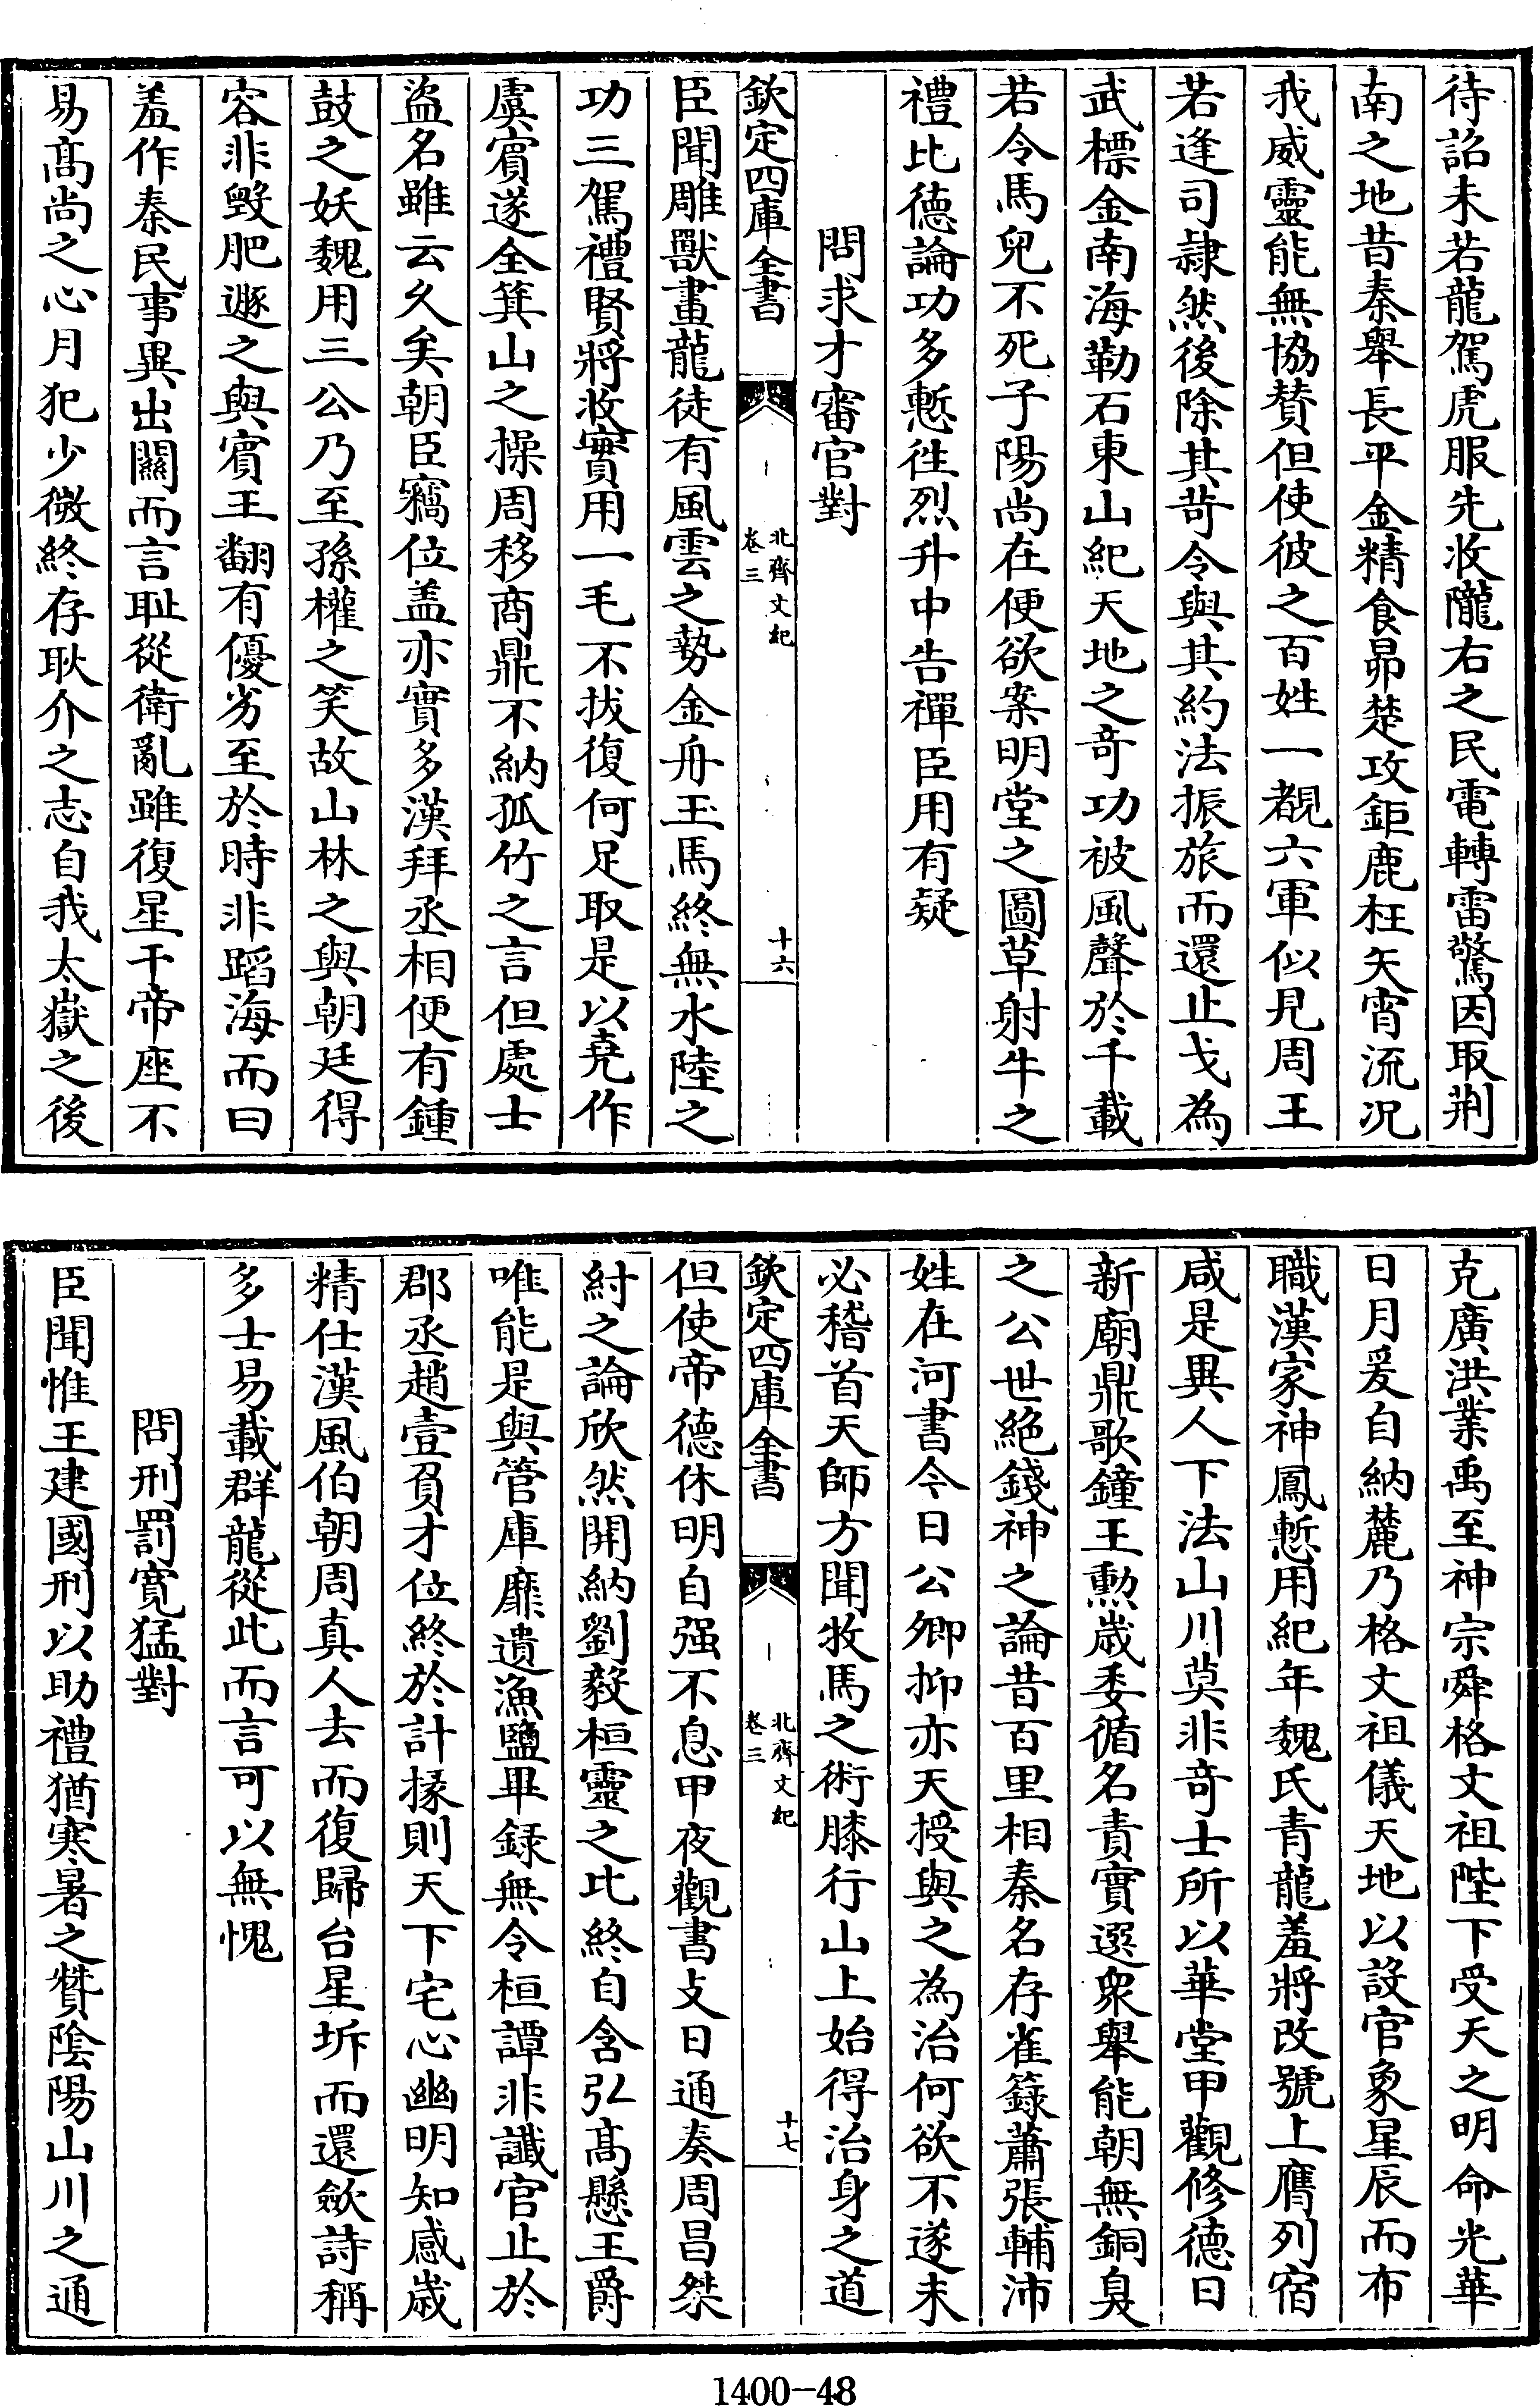 待詔未若龍駕虎服先收隴右之民電轉雷驚因取荆
南之地昔秦舉長平金精食昴楚攻鉅鹿枉矢宵流况
我威靈能無協賛但使彼之百姓一覩六軍似見周王
若逢司隷然後除其苛令與其約法振旅而還止戈為
武標金南海勒石東山紀天地之奇功被風聲於千載
若令馬兒不死子陽尚在便欲案明堂之圖草射牛之
禮比德論功多慙徃烈升中告禪臣用有疑
問求才審官對
欽定四庫全書
北齊文紀
卷三
十六
臣聞雕獸畫龍徒有風雲之勢金舟玉馬終無水陸之
功三駕禮賢將收實用一毛不拔復何足取是以堯作
虞賓遂全箕山之操周移商鼎不納孤竹之言但處士
盜名雖云久矣朝臣竊位盖亦實多漢拜丞相便有鍾
鼓之妖魏用三公乃至孫權之笑故山林之與朝廷得
容非毀肥遯之與賓王翻有優劣至於時非蹈海而曰
羞作秦民事異出關而言耻從衛亂雖復星干帝座不
易髙尚之心月犯少微終存耿介之志自我太嶽之後
克廣洪業禹至神宗舜格文祖陛下受天之明命光華
日月爰自納麓乃格文祖儀天地以設官象星辰而布
職漢家神鳳慙用紀年魏氏青龍羞將改號上膺列宿
咸是異人下法山川莫非奇士所以華堂甲觀修德日
新廟鼎歌鐘王勲歲委循名責實選衆舉能朝無銅臭
之公世絶錢神之論昔百里相秦名存雀籙蕭張輔沛
姓在河書今日公卿抑亦天授與之為治何欲不遂未
必稽首天師方聞牧馬之術膝行山上始得治身之道
欽定四庫全書
北齊文紀
卷三
十七
但使帝德休明自强不息甲夜觀書攴日通奏周昌桀
紂之論欣然開納劉毅桓靈之比終自含弘髙懸王爵
唯能是與管庫靡遺漁鹽畢録無令桓譚非讖官止於
郡丞趙壹負才位終於計掾則天下宅心幽明知感歲
精仕漢風伯朝周真人去而復歸台星坼而還歛詩稱
多士易載群龍從此而言可以無愧
問刑罰寛猛對
臣聞惟王建國刑以助禮猶寒暑之贊陰陽山川之通
1400-48